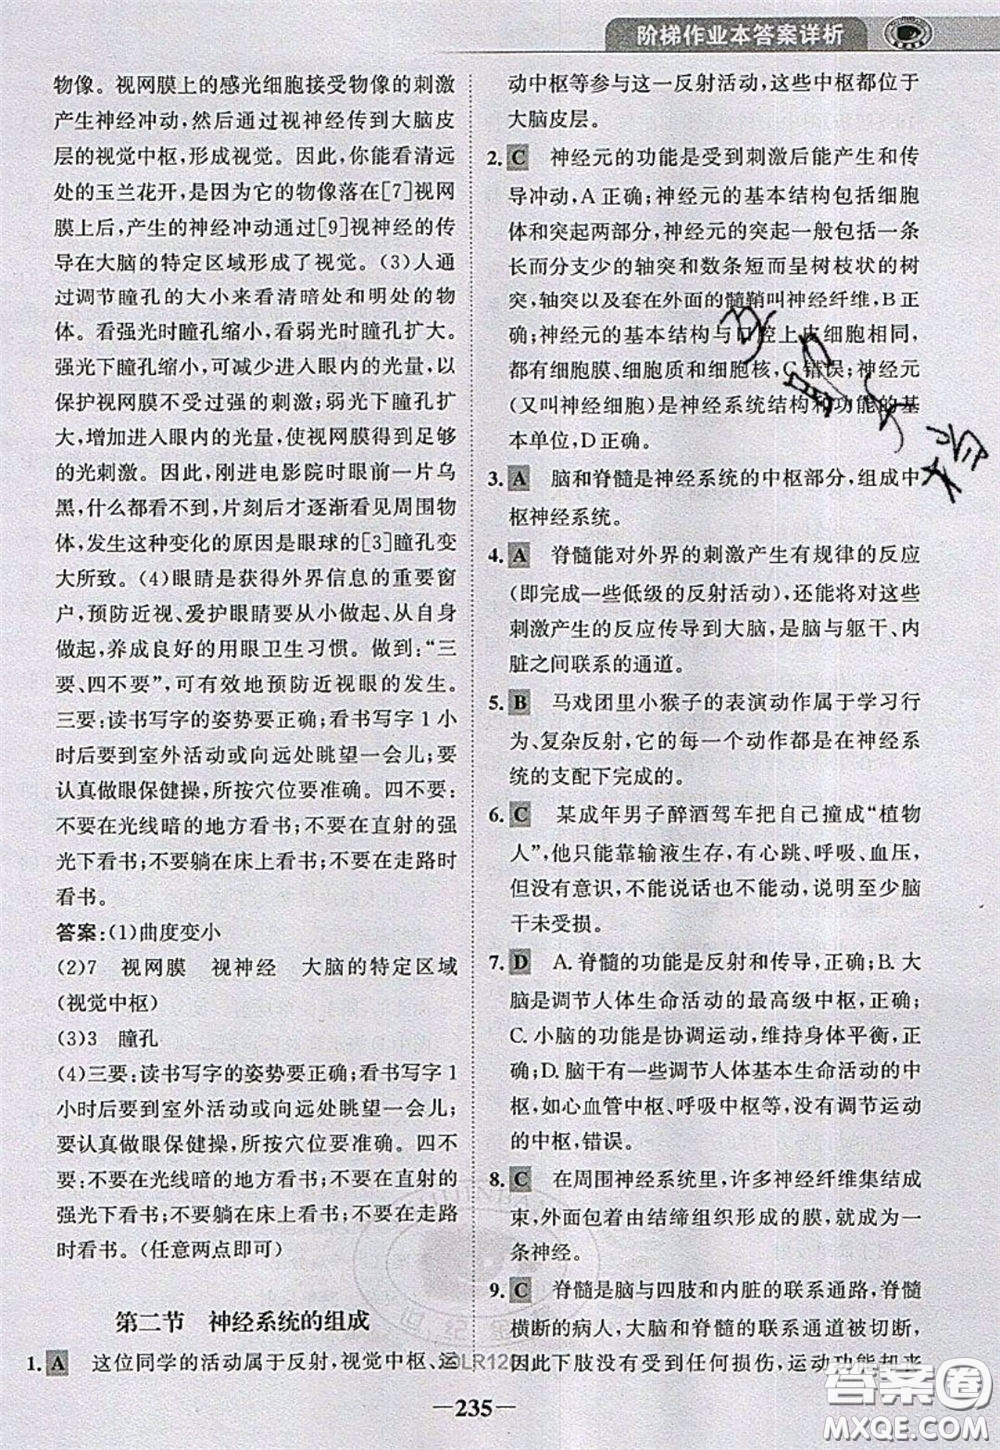 阶梯作业本答案详析
物像。视网膜上的感光细胞接受物像的刺激
产生神经冲动,然后通过视神经传到大脑皮
层的视觉中枢,形成视觉。因此,你能看清远
处的玉兰花开,是因为它的物像落在[7]视网
膜上,产生的神经冲动通过[9]视神经的传
导在大脑的特定区域形成了视觉。(3)人通
过调节瞳孔的大小来看清暗处和明处的物
体。看强光时瞳孔缩小,看弱光时瞳孔扩大。
强光下瞳孔缩小,减少进入眼内的光量,以
保护视网膜不受过强的刺激;弱光下瞳孔扩
大,增加进入眼内的光量,使视网膜得到足够
的光刺激。因此,刚进电影院时眼前一片乌
黑,什么都看不到,片刻后才能看到周围的物
体,发生这种变化的原因是眼球的[3]瞳孔变
大所致。(4)眼睛是获得外界信息的重要窗
户,预防近视、爱护眼睛要从小做起、从自身
做起,养成良好的用眼卫生习惯。做到:“三
要、四不要”,可有效地预防近视眼的发生。
三要:读书写字的姿势要正确;看书写字 1 小
时后要到室外活动或向远处眺望一会儿;要
认真做眼保健操,所按穴位要准确。四不要:
不要在光线暗的地方看书;不要在直射的强
光下看书;不要躺在床上看书;不要在走路时
看书。
答案:(1)曲度变小
(2)7 视网膜 视神经 大脑的特定区域
(视觉中枢)
(3)3 瞳孔
(4)三要:读书写字的姿势要正确;看书写字 1
小时后要到室外活动或向远处眺望一会儿;
要认真做眼保健操,所按穴位要准确。四不
要:不要在光线暗的地方看书;不要在直射的
强光下看书;不要躺在床上看书;不要在走路
时看书。(任意两点即可)
第二节 神经系统的组成
1. A 这位同学的活动属于反射,视觉中枢、运
动中枢等参与了这一反射活动,这些中枢都位于
大脑皮层。
2. C 神经元的功能是受到刺激后能产生和传
导冲动,A 正确;神经元的基本结构包括细胞
体和突起两部分,神经元的突起一般包括一条
长而分支少的轴突和数条短而呈树枝状的树
突,轴突以及套在外面的髓鞘叫神经纤维,B 正
确;神经元的基本结构与口腔上皮细胞相同,
都有细胞膜、细胞质和细胞核,C 错误;神经元
(又叫神经细胞)是神经系统结构和功能的基
本单位,D 正确。
3. A 脑和脊髓是神经系统的中枢部分,组成中
枢神经系统。
4. A 脊髓能对外界的刺激产生有规律的反应
(即完成一些低级的反射活动),还能将对这些
刺激产生的反应传导到大脑,是脑与躯干、内
脏之间联系的通道。
5. B 马戏团里小猴子的表演动作属于学习行
为、复杂反射,它的每一个动作都是在神经系
统的支配下完成的。
6. C 某成年男子醉酒驾车把自己撞成“植物
人”,他只能靠输液生存,有心跳、呼吸、血压,
但没有意识,不能说话也不能动,说明至少脑
干未受损。
7. D A.脊髓的功能是反射和传导,正确;B.大
脑是调节人体生命活动的最高级中枢,正确;
C.小脑的功能是协调运动,维持身体平衡,正
确;D.脑干有一些调节人体基本生命活动的中
枢,如心血管中枢、呼吸中枢等,没有调节运动
的中枢,错误。
8. C 在周围神经系统里,许多神经纤维集结成
束,外面包着由结缔组织形成的膜,就成为一
条神经。
9. C 脊髓是脑与四肢和内脏的联系通路,脊髓
横断的病人,大脑与下肢的联系通路被切断,
因此下肢没有受到任何损伤,运动功能却未
235
答案圈
MXQE.COM